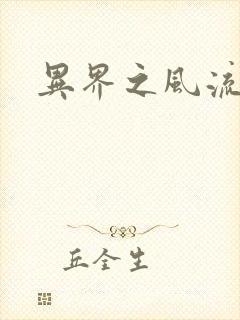 異界之風流
丘全生